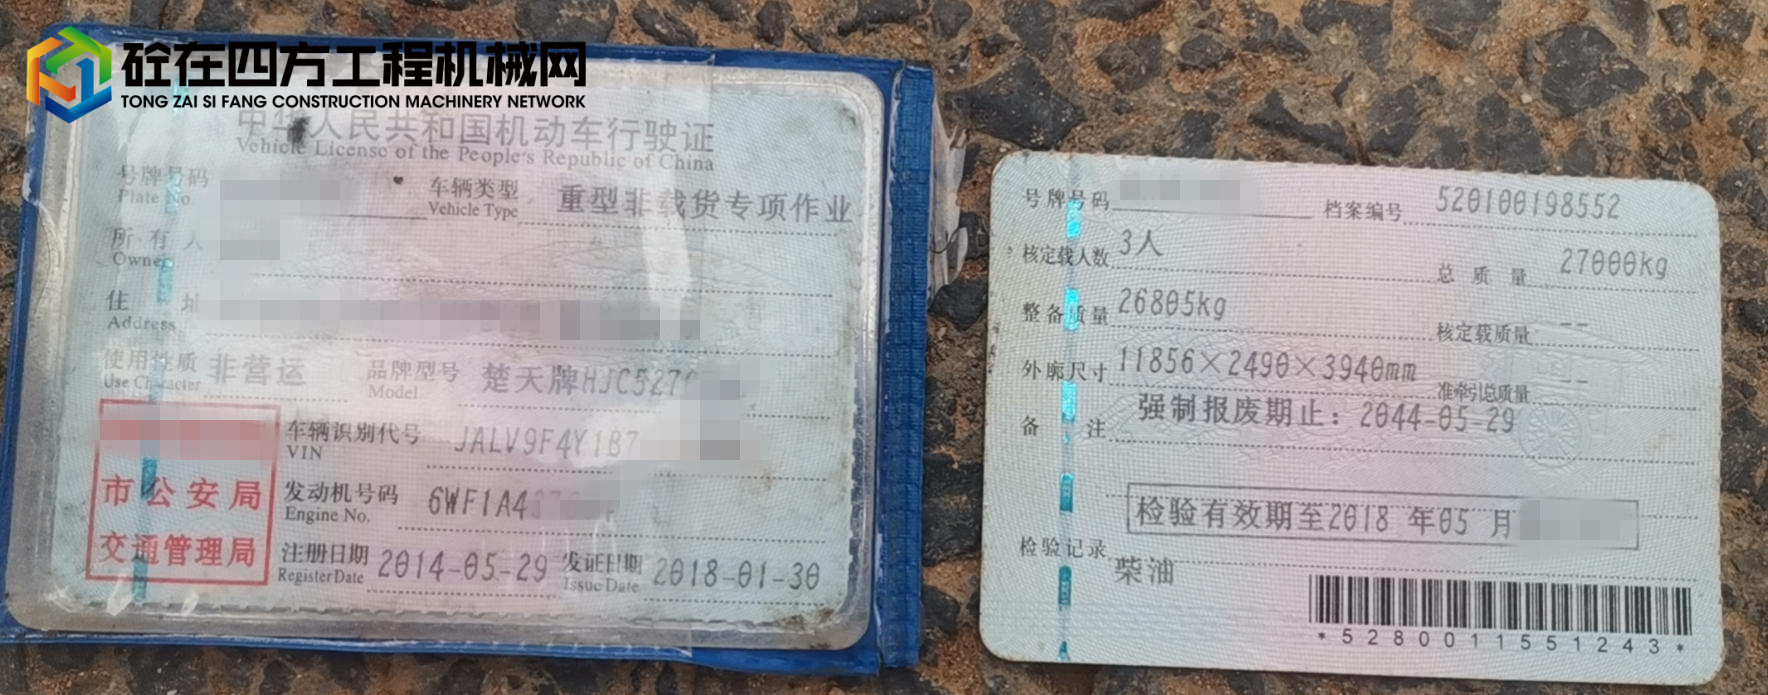 砼在四方工程机械网
TONG ZAI SI FANG CONSTRUCTION MACHINERY NETWORK
中华人民共和国机动车行驶证
Vehicle License of the People's Republic of China
号牌号码
Plate No
车辆类型 重型非载货专项作业
Vehicle Type
所有人
Owner
住址
Address
使用性质 非营运
Use Character
品牌型号 楚天牌HJC527
Model
车辆识别代号 JALV9F4Y1B7
VIN
发动机号码 6WF1A4
Engine No.
注册日期 2014-05-29
Register Date
发证日期 2018-01-30
Issue Date
市公安局
交通管理局
号牌号码 档案编号 520100198552
核定载人数 3人 总质量 27000kg
整备质量 26805kg 核定载质量 --
外廓尺寸 11856×2490×3940mm 准牵引总质量 --
备注 强制报废期止：2044-05-29
检验有效期至2018年05月
检验记录
柴油
*5280011551243*